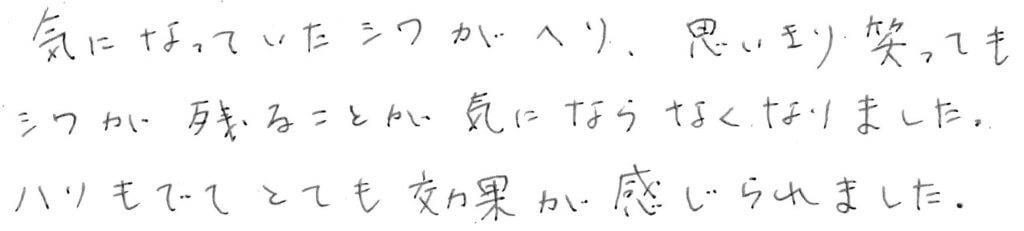 気になっていたシワがヘリ、思いきり笑っても
シワが残ることが気にならなくなりました。
ハリもでてとても効果が感じられました.